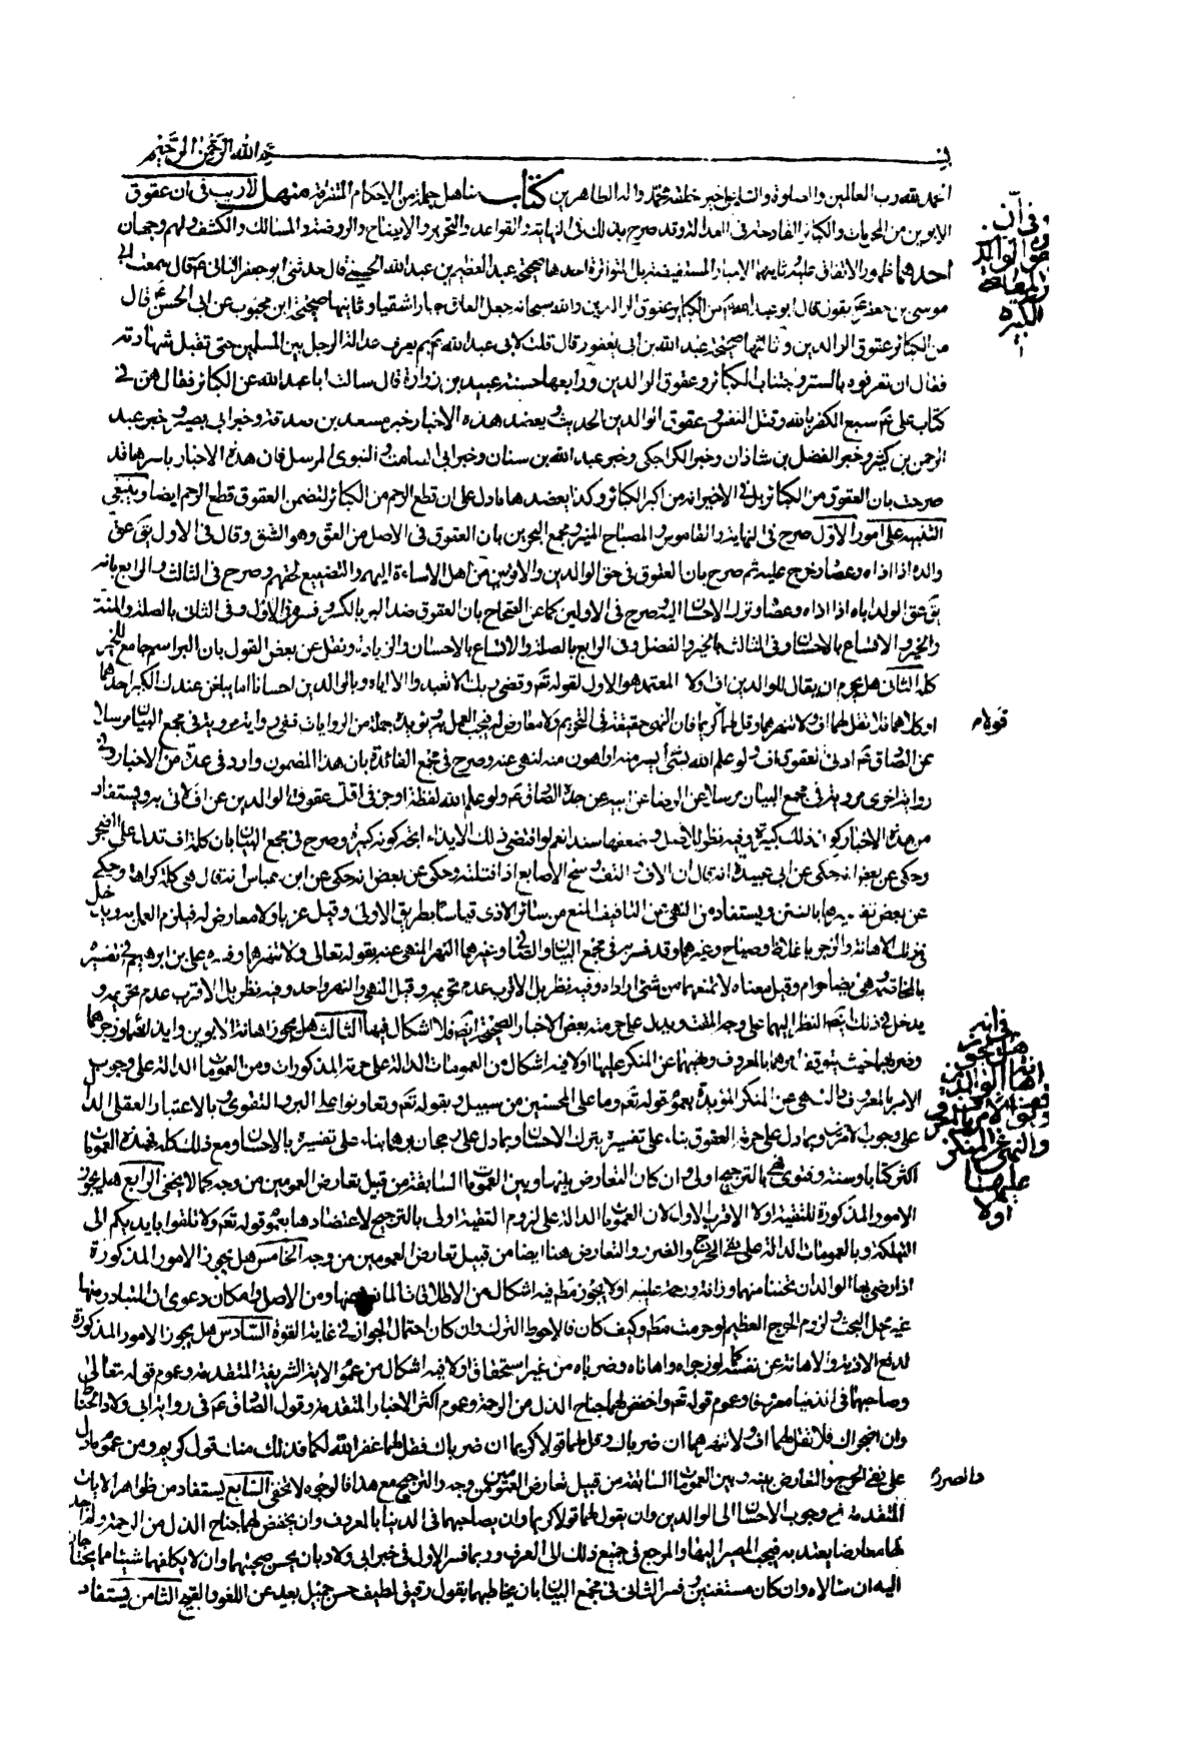 بسم الله الرحمن الرحيم
الحمد لله رب العالمين والصلوة والسلام على خير خلقه محمد واله الطاهرين كتاب مناهل جملة من الاحكام المتفرقة منهل لا ريب في ان عقوق
الابوين من المحرمات والكبائر القادحة في العدالة وقد صرح بذلك في النهاية والقواعد والتحرير والايضاح والروضة والمسالك والكشف ولهم وجهان
احدهما ظهور الاتفاق عليه وثانيهما الاخبار المستفيضة بل المتواترة احدها صحيحة عبد العظيم بن عبد الله الحسني قال حدثني ابو جعفر الثاني ع قال سمعت ابي
موسى بن جعفر ع يقول قال ابو عبد الله ع من الكبائر عقوق الوالدين والله سبحانه جعل العاق جبارا شقيا وثانيها صحيحة ابن محبوب عن ابي الحسن ع قال
من الكبائر عقوق الوالدين وثالثها صحيحة عبد الله بن ابي يعفور قال قلت لابي عبد الله ع بم يعرف عدالة الرجل بين المسلمين حتى تقبل شهادته
فقال ان تعرفوه بالستر واجتناب الكبائر وعقوق الوالدين ورابعها حسنة عبيد بن زرارة قال سالت ابا عبد الله عن الكبائر فقال هن في
كتاب علي ع سبع الكفر بالله وقتل النفس وعقوق الوالدين الحديث ويعضد هذه الاخبار خبر مسعدة بن صدقة وخبر ابي بصير وخبر عبد
الرحمن بن كثير وخبر الفضل بن شاذان وخبر الكراجكي وخبر عبد الله بن سنان وخبر ابي الصامت والنبوي المرسل فان هذه الاخبار باسرها قد
صرحت بان العقوق من الكبائر بل في الاخير انه من اكبر الكبائر وكذا يعضدها ما دل على ان قطع الرحم من الكبائر لتضمن العقوق قطع الرحم ايضا وينبغي
التنبيه على امور الاول صرح في النهاية والقاموس والمصباح المنير ومجمع البحرين بان العقوق في الاصل من العق وهو الشق وقال في الاول يق عق
والده اذا اذاه وعصاه وخرج عليه ثم صرح بان العقوق في حق الوالدين والاقربين من اهل الاساءة اليهم والتضييع لحقهم وصرح في الثالث والرابع بانه
يق عق الولد اباه اذا اذاه وعصاه وترك الاحسان اليه وصرح في الاولين كما عن الصحاح بان العقوق ضد البر بالكسر وفسره في الاول وفي الثاني بالصلة والمنة
والخير والاتساع بالاحسان وفي الثالث بالخير والفضل وفي الرابع بالصلة والاتساع بالاحسان والزيادة ونقل عن بعض القول بان البر اسم جامع للخير
كله الثاني هل يحرم ان يقال للوالدين اف او لا المعتمد هو الاول لقوله تعالى وقضى ربك الا تعبدوا الا اياه وبالوالدين احسانا اما يبلغن عندك الكبر احدهما
او كلاهما فلا تقل لهما اف ولا تنهرهما وقل لهما قولا كريما فان النهي حقيقة في التحريم ولا معارض له فيجب العمل به ويؤيده جملة من الروايات ففي رواية مروية في مجمع البيان مرسلا
عن الصادق ع ادنى العقوق اف ولو علم الله شئ ايسر منه او اهون منه لنهى عنه وصرح في مجمع الفائدة بان هذا المضمون وارد في عدة من الاخبار وفي
رواية اخرى مروية في مجمع البيان مرسلا عن الرضا عن ابيه عن جده الصادق ع ولو علم الله لفظة اوجز في اقل عقوق الوالدين عن اف لاتى به ويستفاد
من هذه الاخبار كون ذلك كبيرة وفيه نظر للاصل وضعفها سندا نعم لو اقتضى ذلك الايذاء اتجه كونه كبيرة وصرح في مجمع البيان بان كلمة اف تدل على الضجر
وحكي عن بعض انه حكي عن ابي عبيدة انه قال ان الاف والتف وسخ الاصابع اذا فتلته وحكي عن بعض انه حكي عن ابن عباس انه قال هي كلمة كراهة وحكي
عن بعض تفسيرها بالنتن ويستفاد من النهي عن التافيف المنع من سائر الاذى قياسا بطريق الاولى وقيل عرفا ولا معارض له فيلزم العمل به ويدخل
في ذلك الاهانة والزجر باغلاظ وصياح وغيرهما وقد فسر به في مجمع البيان والصافي وغيرهما النهر المنهي عنه بقوله تعالى ولا تنهرهما وفسره علي بن ابراهيم في تفسيره
بالمخاصمة وهي ايضا حرام وقيل معناه لا تمنعهما من شئ اراداه وفيه نظر بل الاقرب عدم تحريمه وقيل النهي والنهر واحد وفيه نظر بل الاقرب عدم تحريمه و
يدخل في ذلك ايضا النظر اليهما على وجه المقت ويدل على حرمته بعض الاخبار الصحيحة ايضا فلا اشكال فيها الثالث هل يجوز اهانة الابوين وايذائهما وزجرهما
وضربهما حيث يتوقف امرهما بالمعروف ونهيهما عن المنكر عليها او لا فيه اشكال من العمومات الدالة على حرمة المذكورات ومن العمومات الدالة على وجوب
الامر بالمعروف والنهي عن المنكر المؤيدة بعموم قوله تعالى وما على المحسنين من سبيل وبقوله تعالى وتعاونوا على البر والتقوى وبالاعتبار العقلي الدال
على وجوب الامرين وبما دل على حرمة العقوق بناء على تفسيره بترك الاحسان وبما دل على رجحان برهما بناء على تفسيره بالاحسان ومع ذلك كله فهذه العمومات
اكثر كتابا وسنة وفتوى فهي بالترجيح اولى وان كان التعارض بينها وبين العمومات السابقة من قبيل تعارض العمومين من وجه كما لا يخفى الرابع هل يجوز
الامور المذكورة للتقية او لا الاقرب الاول لان العمومات الدالة على لزوم التقية اولى بالترجيح لاعتضادها بعموم قوله تعالى ولا تلقوا بايديكم الى
التهلكة وبالعمومات الدالة على نفي الحرج والضرر والتعارض هنا ايضا من قبيل تعارض العمومين من وجه الخامس هل يجوز الامور المذكورة
اذا رضي بها الوالدان تحننا منهما ورأفة ورحمة عليه او لا يجوز مطلقا فيه اشكال من الاطلاقات المانعة عنها ومن الاصل وامكان دعوى ان المتبادر منها
غير محل البحث ولزوم الحرج العظيم لو حرمت مطلقا وكيف كان فالاحوط الترك وان كان احتمال الجواز في غاية القوة السادس هل يجوز الامور المذكورة
لدفع الاذية والاهانة عن نفسه كما لو زجراه واهاناه وضرباه من غير استحقاق او لا فيه اشكال من عموم الاية الشريفة المتقدمة وعموم قوله تعالى
وصاحبهما في الدنيا معروفا وعموم قوله تعالى واخفض لهما جناح الذل من الرحمة وعموم اكثر الاخبار المتقدمة وقول الصادق ع في رواية ابي ولاد الحناط
وان اضجراك فلا تقل لهما اف ولا تنهرهما ان ضرباك وقل لهما قولا كريما ان ضرباك فقل لهما غفر الله لكما فذلك منك قول كريم ومن عموم ما دل
على نفي الحرج والتعارض بينه وبين العمومات السابقة من قبيل تعارض العمومين من وجه والترجيح مع هذا فالوجوه لا تخفى السابع يستفاد من ظواهر الايات
المتقدمة ع وجوب الاحسان الى الوالدين وان يقول لهما قولا كريما وان يصاحبهما في الدنيا بالمعروف وان يخفض لهما جناح الذل من الرحمة ولم اجد
لها معارضا يعتد به فيجب المصير اليها والمرجع في جميع ذلك الى العرف وربما فسر الاول في خبر ابي ولاد بان يحسن صحبتهما وان لا يكلفهما شيئا مما يحتاجان
اليه ان سالاه وان كانا مستغنيين وفسر الثاني في مجمع البيان بان يخاطبهما بقول رقيق لطيف حسن جميل بعيد عن اللغو والقبيح الثامن يستفاد
في ان
عقوق الوالدين
من المعاصي
الكبيرة
قولا
في انه
هل يجوز
اهانة الوالدين
وقت الامر بالمعروف
والنهي عن المنكر
عليهما
او لا
والضرر